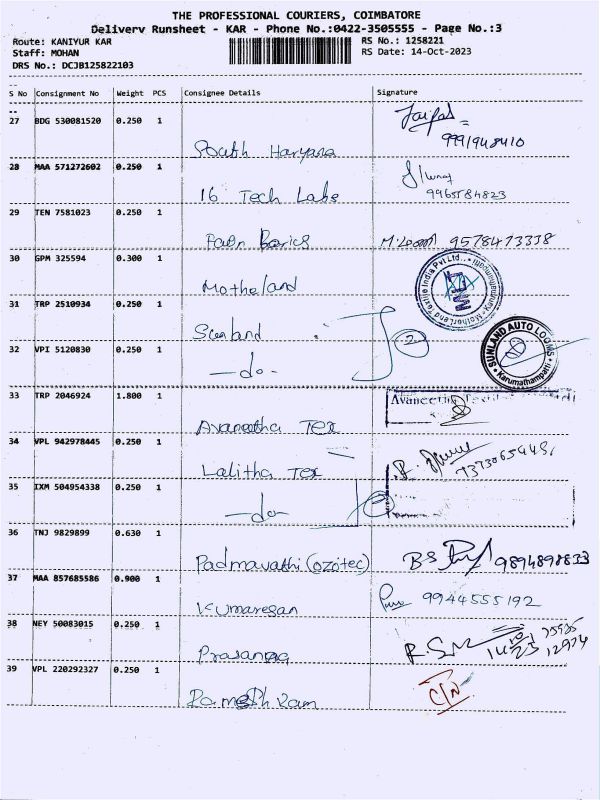 THE PROFESSIONAL COURIERS, COIMBATORE
Delivery Runsheet - KAR - Phone No.:0422-3505555 - Page No.:3
Route: KANIYUR KAR RS No.: 1258221
Staff: MOHAN RS Date: 14-Oct-2023
DRS No.: DCJB125822103
S No Consignment No Weight PCS Consignee Details Signature
27 BDG 530081520 0.250 1
South Haryana 9991948410
28 MAA 571272602 0.250 1
16 Tech Labs 9965584823
29 TEN 7581023 0.250 1
9578473338
30 GPM 325594 0.300 1
Motheland
31 TRP 2510934 0.250 1
Sunland 2
32 VPI 5120830 0.250 1
-do-
SUNLAND AUTO LOOMS
Karumathampatti
33 TRP 2046924 1.800 1
Avaneetha Tex
34 VPL 942978445 0.250 1
Lalitha Tex
35 IXM 504954338 0.250 1
-do-
36 TNJ 9829899 0.630 1
Padmavathi (ozotec) 9894898833
37 MAA 857685586 0.900 1
Kumaresan 9944555192
38 NEY 50083015 0.250 1
Prasanna RSM
39 VPL 220292327 0.250 1
Ramesh Ram